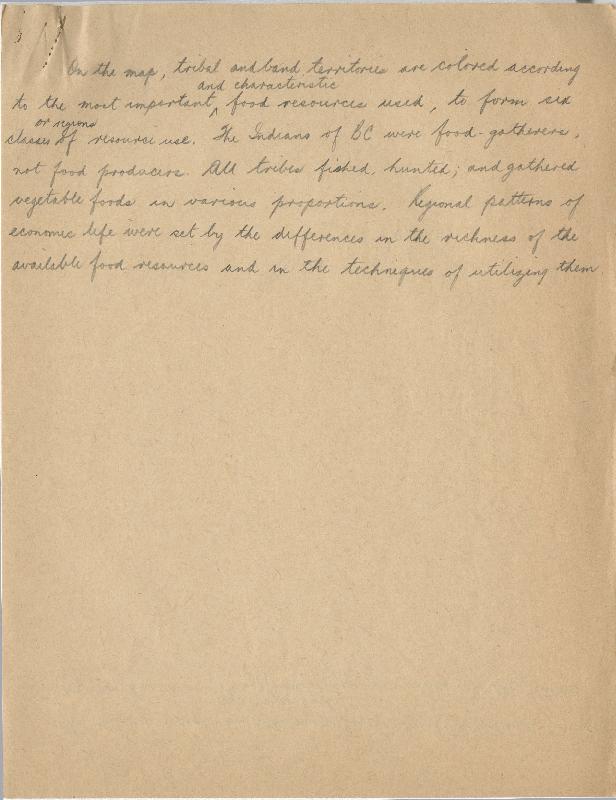 On the map, tribal and band territories are colored according
and characteristic
to the most important ^ food resources used, to form six
or regions
classes of resource use. The Indians of BC were food-gatherers,
not food producers. All tribes fished, hunted, and gathered
vegetable foods in various proportions. Regional patterns of
economic life were set by the differences in the richness of the
available food resources and in the techniques of utilizing them.